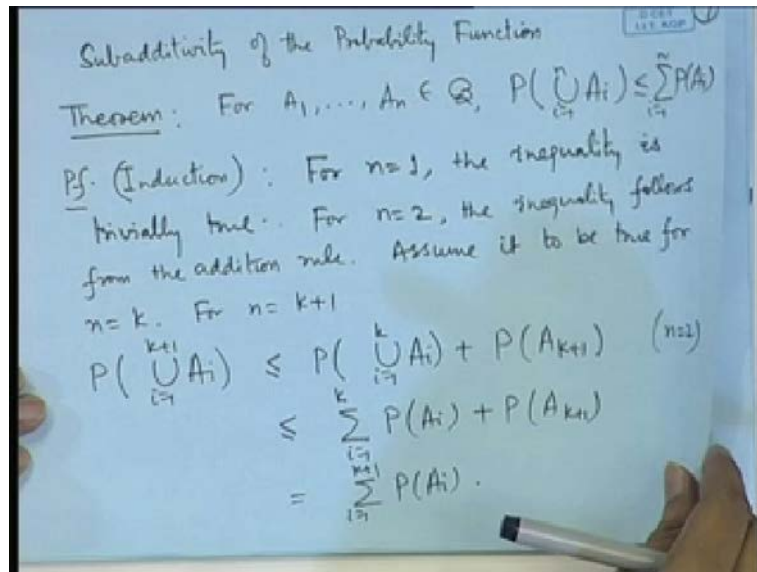 Subadditivity of the Probability Function
Theorem: For A₁, ..., Aₙ ∈ ℬ, P(⋃ᵢ₌₁ⁿ Aᵢ) ≤ ∑ᵢ₌₁ⁿ P(Aᵢ)
Pf. (Induction): For n=1, the inequality is
trivially true. For n=2, the inequality follows
from the addition rule. Assume it to be true for
n=k. For n=k+1
P(⋃ᵢ₌₁ᵏ⁺¹ Aᵢ) ≤ P(⋃ᵢ₌₁ᵏ Aᵢ) + P(Aₖ₊₁) (n=2)
≤ ∑ᵢ₌₁ᵏ P(Aᵢ) + P(Aₖ₊₁)
= ∑ᵢ₌₁ᵏ⁺¹ P(Aᵢ).